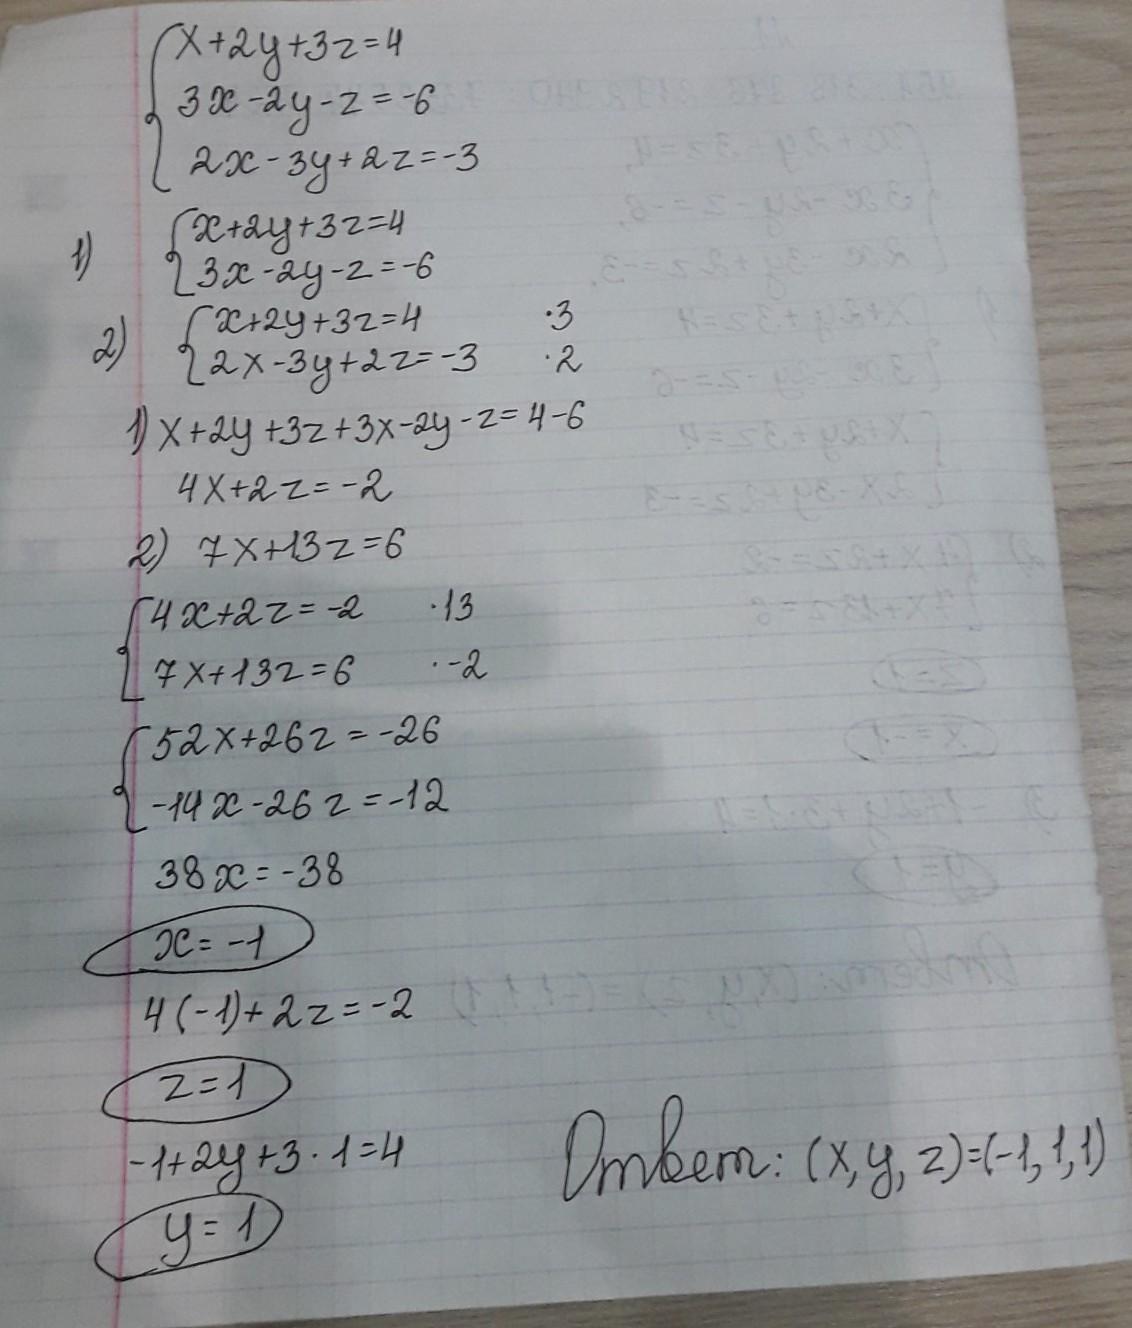 x+2y+3z=4
3x-2y-z=-6
2x-3y+2z=-3
1) x+2y+3z=4
3x-2y-z=-6
2) x+2y+3z=4 ·3
2x-3y+2z=-3 ·2
1) x+2y+3z+3x-2y-z=4-6
4x+2z=-2
2) 7x+13z=6
4x+2z=-2 ·13
7x+13z=6 ·-2
52x+26z=-26
-14x-26z=-12
38x=-38
x=-1
4(-1)+2z=-2
z=1
-1+2y+3·1=4
y=1
Ответ: (x,y,z)=(-1,1,1)